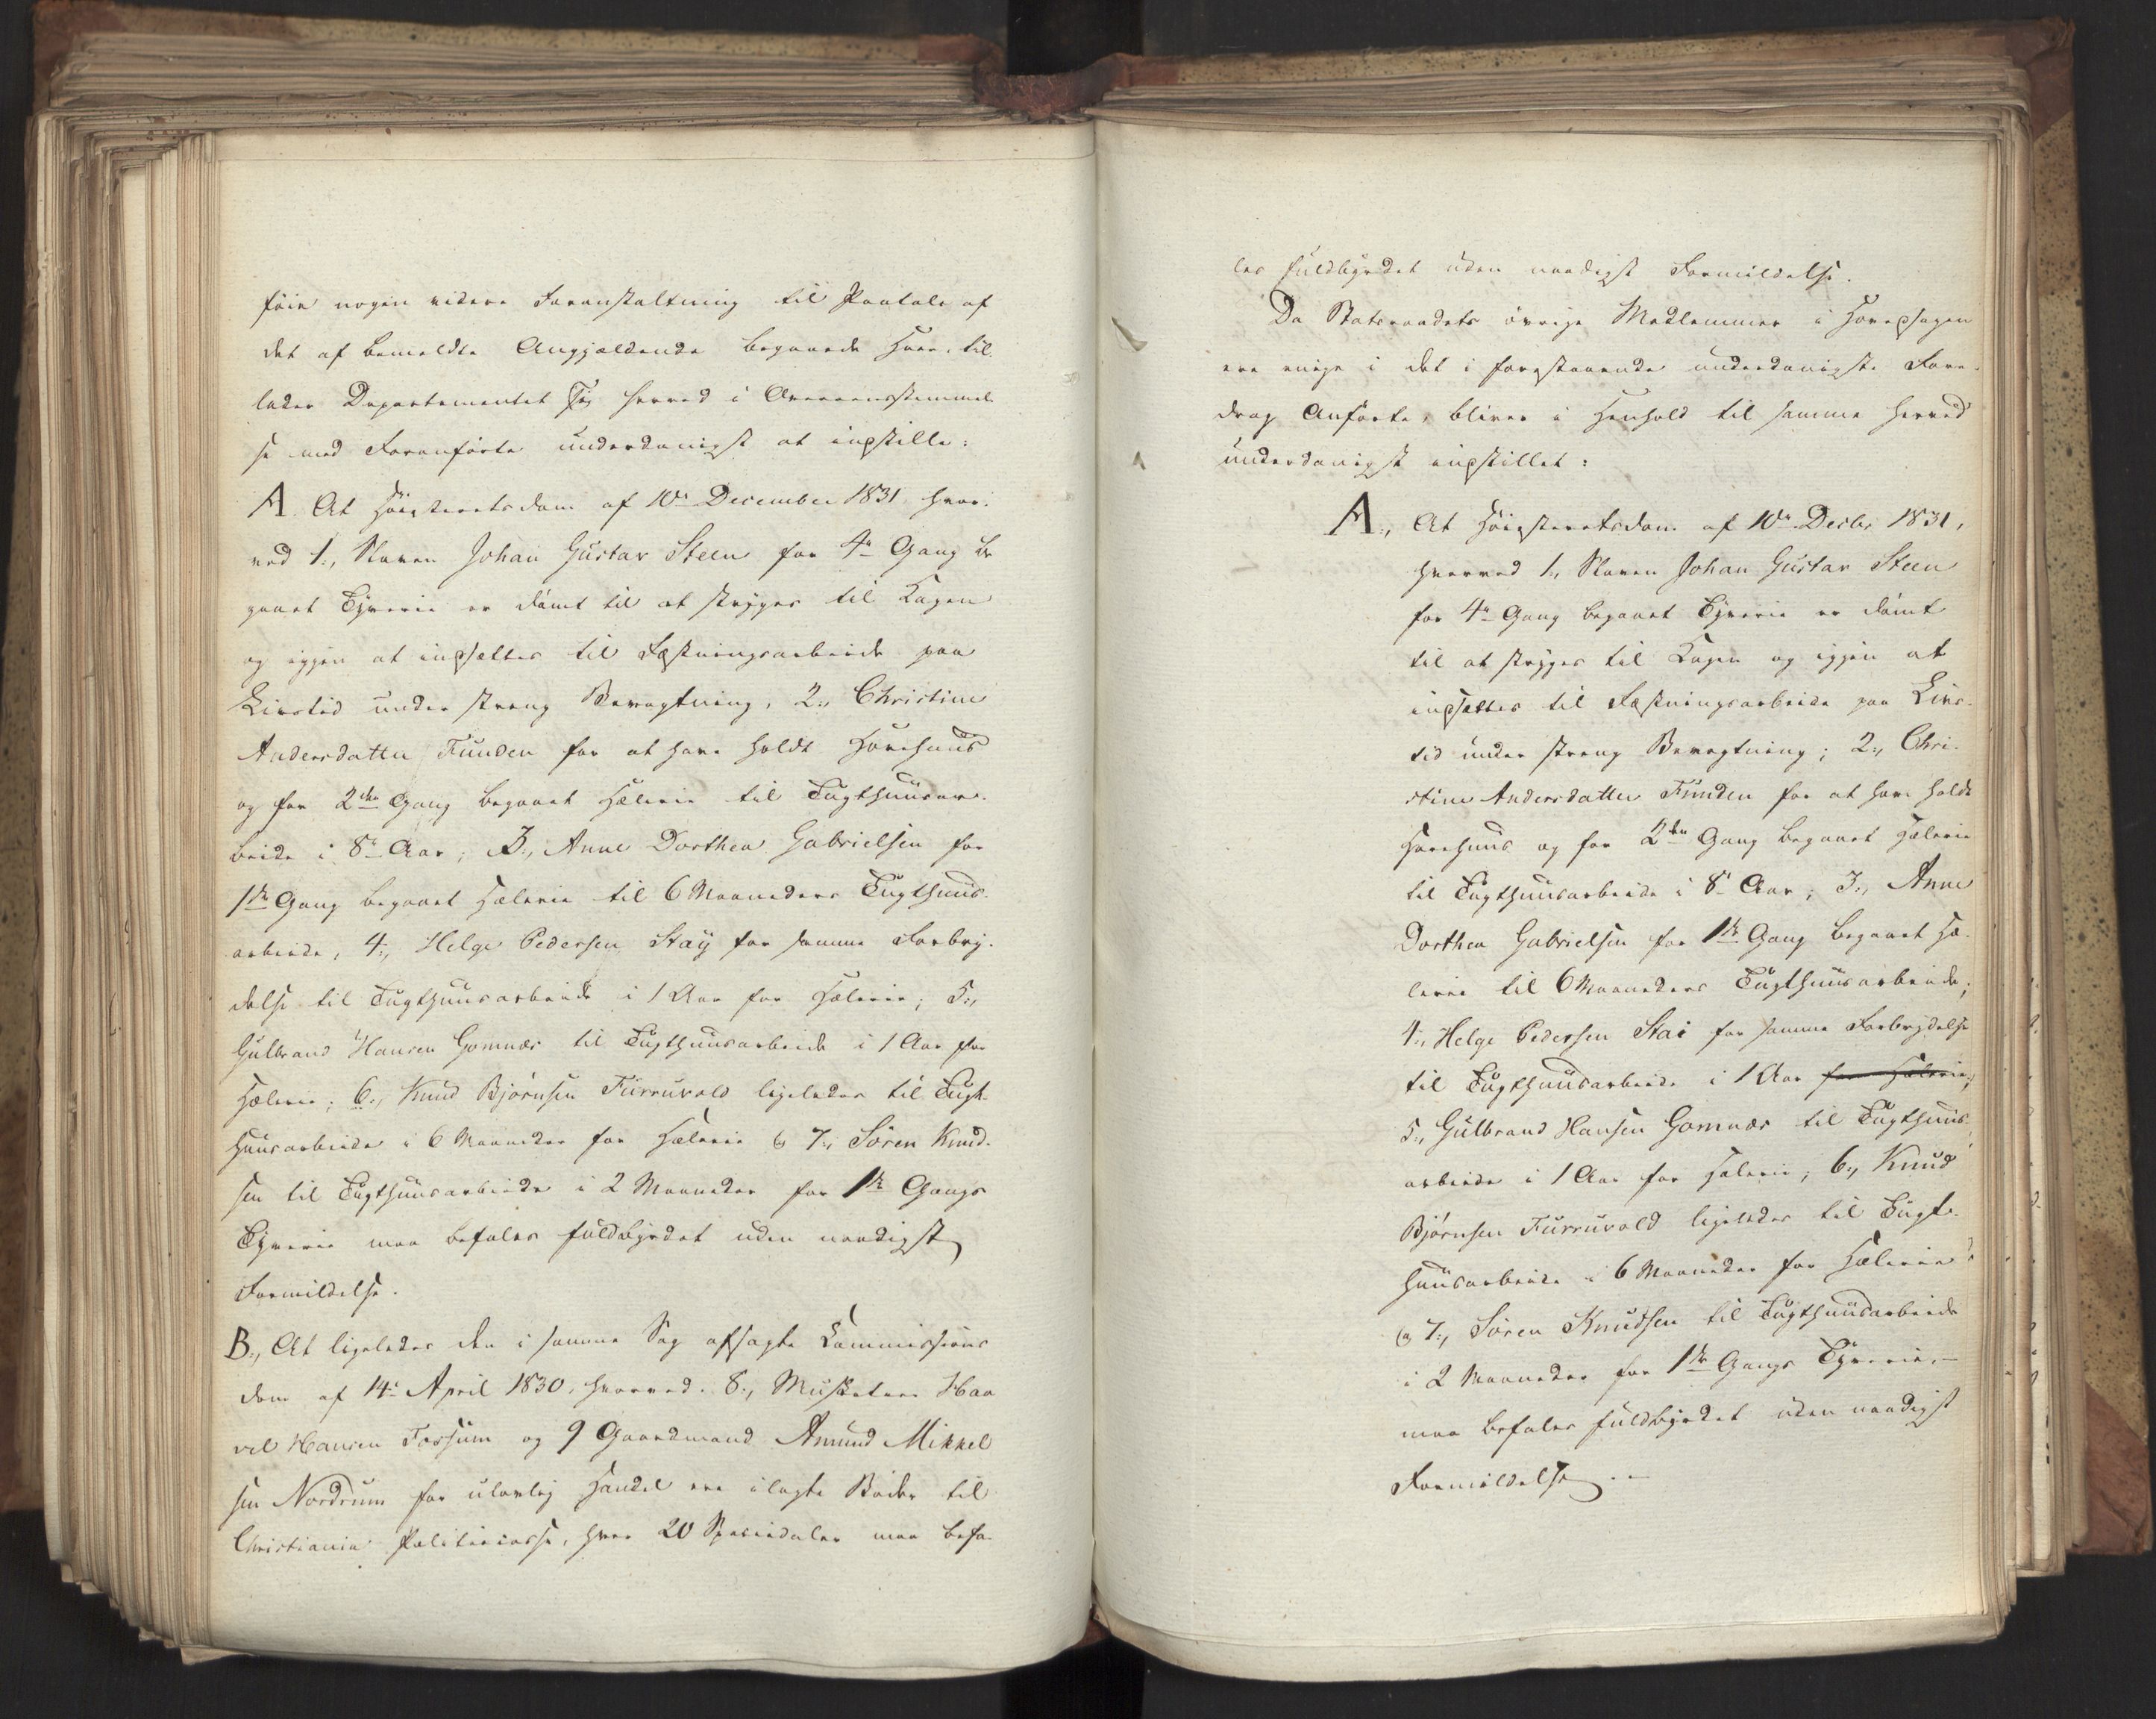 føie nogen videre Foranstaltning til Paatale af
det af bemeldte Angjældende begaaede Hor, til
lader Departementet sig herved i Overeensstemmel
se med Foranførte underdanigst at indstille:
A. At Høiesteretsdom af 10de December 1831 hvor-
ved 1., Slaven Johan Gustav Steen for 4de Gang be
gaaet Tyverie er dømt til at stryges til Kagen
og igjen at indsættes til Fæstningsarbeide paa
Livstid under streng Bevogtning, 2., Christine
Andersdatter Funden for at have holdt Horehuus
og for 2den Gang begaaet Hælerie til Tugthuusar-
beide i 8te Aar; 3., Anne Dorthea Gabrielsen for
1ste Gang begaaet Hælerie til 6 Maaneders Tugthuus-
arbeide, 4., Helge Pedersen Staÿ for samme Forbry-
delse til Tugthuusarbeide i 1 Aar for Hælerie; 5.,
Gulbrand Hansen Gomnæs til Tugthuusarbeide i 1 Aar for
Hælerie; 6., Knud Bjørnsen Furruvald ligeledes til Tugt-
huusarbeide i 6 Maaneder for Hælerie og 7., Søren Knud-
sen til Tugthuusarbeide i 2 Maaneder for 1ste Gangs
Tyverie maa befales fuldbyrdet uden naadigst
Formildelse.
B., At ligeledes den i samme Sag afsagte Commissions
dom af 14de April 1830, hvorved 8., Musketeer Haa
vel Hansen Fossum og 9 Gaardmand Amund Mikkel
sen Nordrum for ulovlig Handel ere ilagte Bøder til
Christiania Politiecasse, hver 20 Speciedaler maa befa-
les fuldbyrdet uden naadigst Formildelse.
Da Statsraadets øvrige Medlemmer i Hovedsagen
ere enige i det i forestaaende underdanigste Fore-
drag Anførte, bliver i Henhold til samme herved
underdanigst indstillet:
A., At Høiesteretsdom af 10de Decbr 1831,
hvorved 1., Slaven Johan Gustav Steen
for 4de Gang begaaet Tyverie er dømt
til at stryges til Kagen og igjen at
indsættes til Fæstningsarbeide paa Livs-
tid under streng Bevogtning; 2., Chri-
stine Andersdatter Funden for at have holdt
Horehuus og for 2den Gang begaaet Hælerie
til Tugthuusarbeide i 8te Aar; 3., Anne
Dorthea Gabrielsen for 1ste Gang begaaet Hæ-
lerie til 6 Maaneders Tugthuusarbeide;
4., Helge Pedersen Stai for samme Forbrydelse
til Tugthuusarbeide i 1 Aar for Hælerie;
5., Gulbrand Hansen Gomnæs til Tugthuus-
arbeide i 1 Aar for Hælerie; 6., Knud
Bjørnsen Furruvald ligeledes til Tugt-
huusarbeide i 6 Maaneder for Hælerie
og 7., Søren Knudsen til Tugthuusarbeide
i 2 Maaneder for 1ste Gangs Tyverie, –
maa befales fuldbyrdet uden naadigst
Formildelse. –